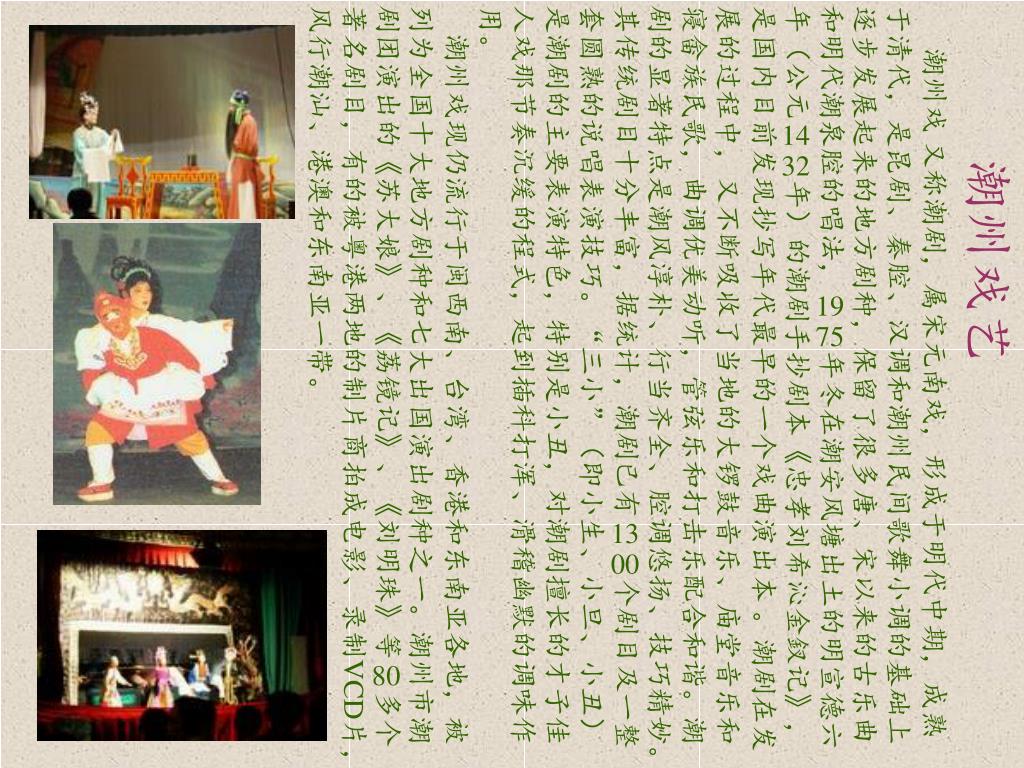 潮州戏艺
潮州戏又称潮剧，属宋元南戏，形成于明代中期，成熟
于清代，是昆剧、秦腔、汉调和潮州民间歌舞小调的基础上
逐步发展起来的地方剧种，保留了很多唐、宋以来的古乐曲
和明代潮泉腔的唱法，1975年冬在潮安凤塘出土的明宣德六
年（公元1432年）的潮剧手抄剧本《忠孝刘希沁金钗记》，
是国内目前发现抄写年代最早的一个戏曲演出本。潮剧在发
展的过程中，又不断吸收了当地的大锣鼓音乐、庙堂音乐和
寝畲族民歌，曲调优美动听，管弦乐和打击乐配合和谐。潮
剧的显著特点是潮风淳朴、行当齐全、腔调悠扬、技巧精妙。
其传统剧目十分丰富，据统计，潮剧已有1300个剧目及一整
套圆熟的说唱表演技巧。“三小”（即小生、小旦、小丑）
是潮剧的主要表演特色，特别是小丑，对潮剧擅长的才子佳
人戏那节奏沉缓的程式，起到插科打浑、滑稽幽默的调味作
用。
潮州戏现仍流行于闽西南、台湾、香港和东南亚各地，被
列为全国十大地方剧种和七大出国演出剧种之一。潮州市潮
剧团演出的《苏六娘》、《荔镜记》、《刘明珠》等80多个
著名剧目，有的被粤港两地的制片商拍成电影、录制VCD片，
风行潮汕、港澳和东南亚一带。